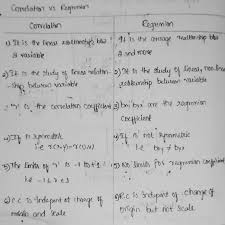 Correlation vs Regression
Correlation
Regression
1) It is the linear relationship b/w
2 variable
1) It is the average relationship b/w
2 and more
2) It is the study of linear relation-
ship between variable
2) It is the study of linear, non-linear
relationship between variable
3) "r" is the correlation coefficient
3) bxy byx are the regression
coefficient
4) It symmetric
i.e r(x,y) = r(y,x)
4) It is not symmetric
i.e bxy ≠ byx
5) The limits of "r" is -1 to +1
i.e -1 ≤ r ≤ 1
5) No limits for regression coefficient
6) C.C is Indepent of change of
and scale
6) R.C is Indepent of change of
origin but not scale